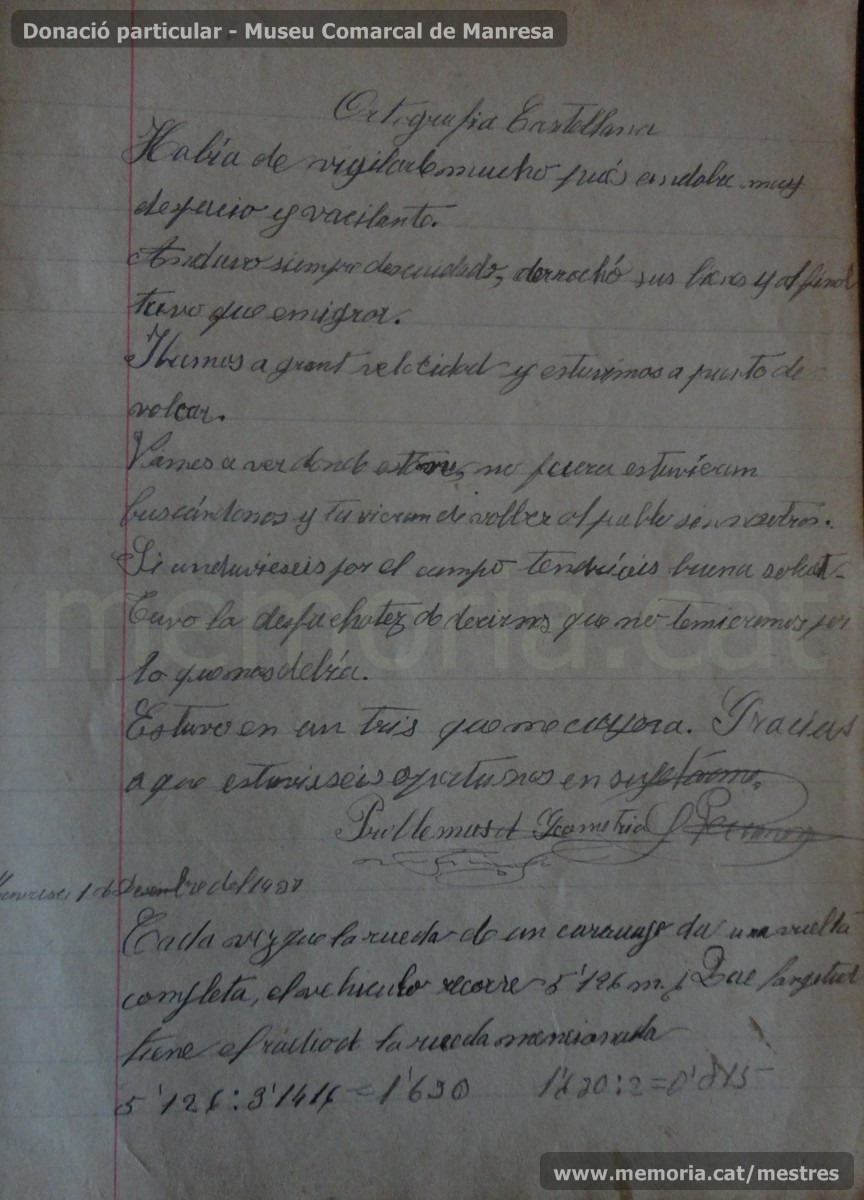 Donació particular - Museu Comarcal de Manresa
Ortografia Castellana
Había de vigilarle mucho pués andaba muy
despacio y vacilante.
Anduvo siempre descuidado, derrochó sus bienes y al final
tuvo que emigrar.
Ibamos a grant velocidad y estuvimos a punto de
volcar.
Vamos a ver donde no fuera estuvieran
buscándonos y tuvieran de volber al pueblo sin nosotros.
Si anduvieseis por el campo tendríais buena salut.
Tuvo la desfachatez de decirnos que no temieramos por
lo que nos debía.
Estuvo en un tris que me cayera. Gracias
a que estuvieseis oportunos en
Problemas d Geometria
1 de del 1927
Cada vez que la rueda de un caruage da una vuelta
completa, el vehiculo recorre 5'126 m. ¿Que longitud
tiene el radio d la rueda mencionada
5'126 : 3'1416 = 1'630 1'630 : 2 = 0'815
memoria.cat
www.memoria.cat/mestres